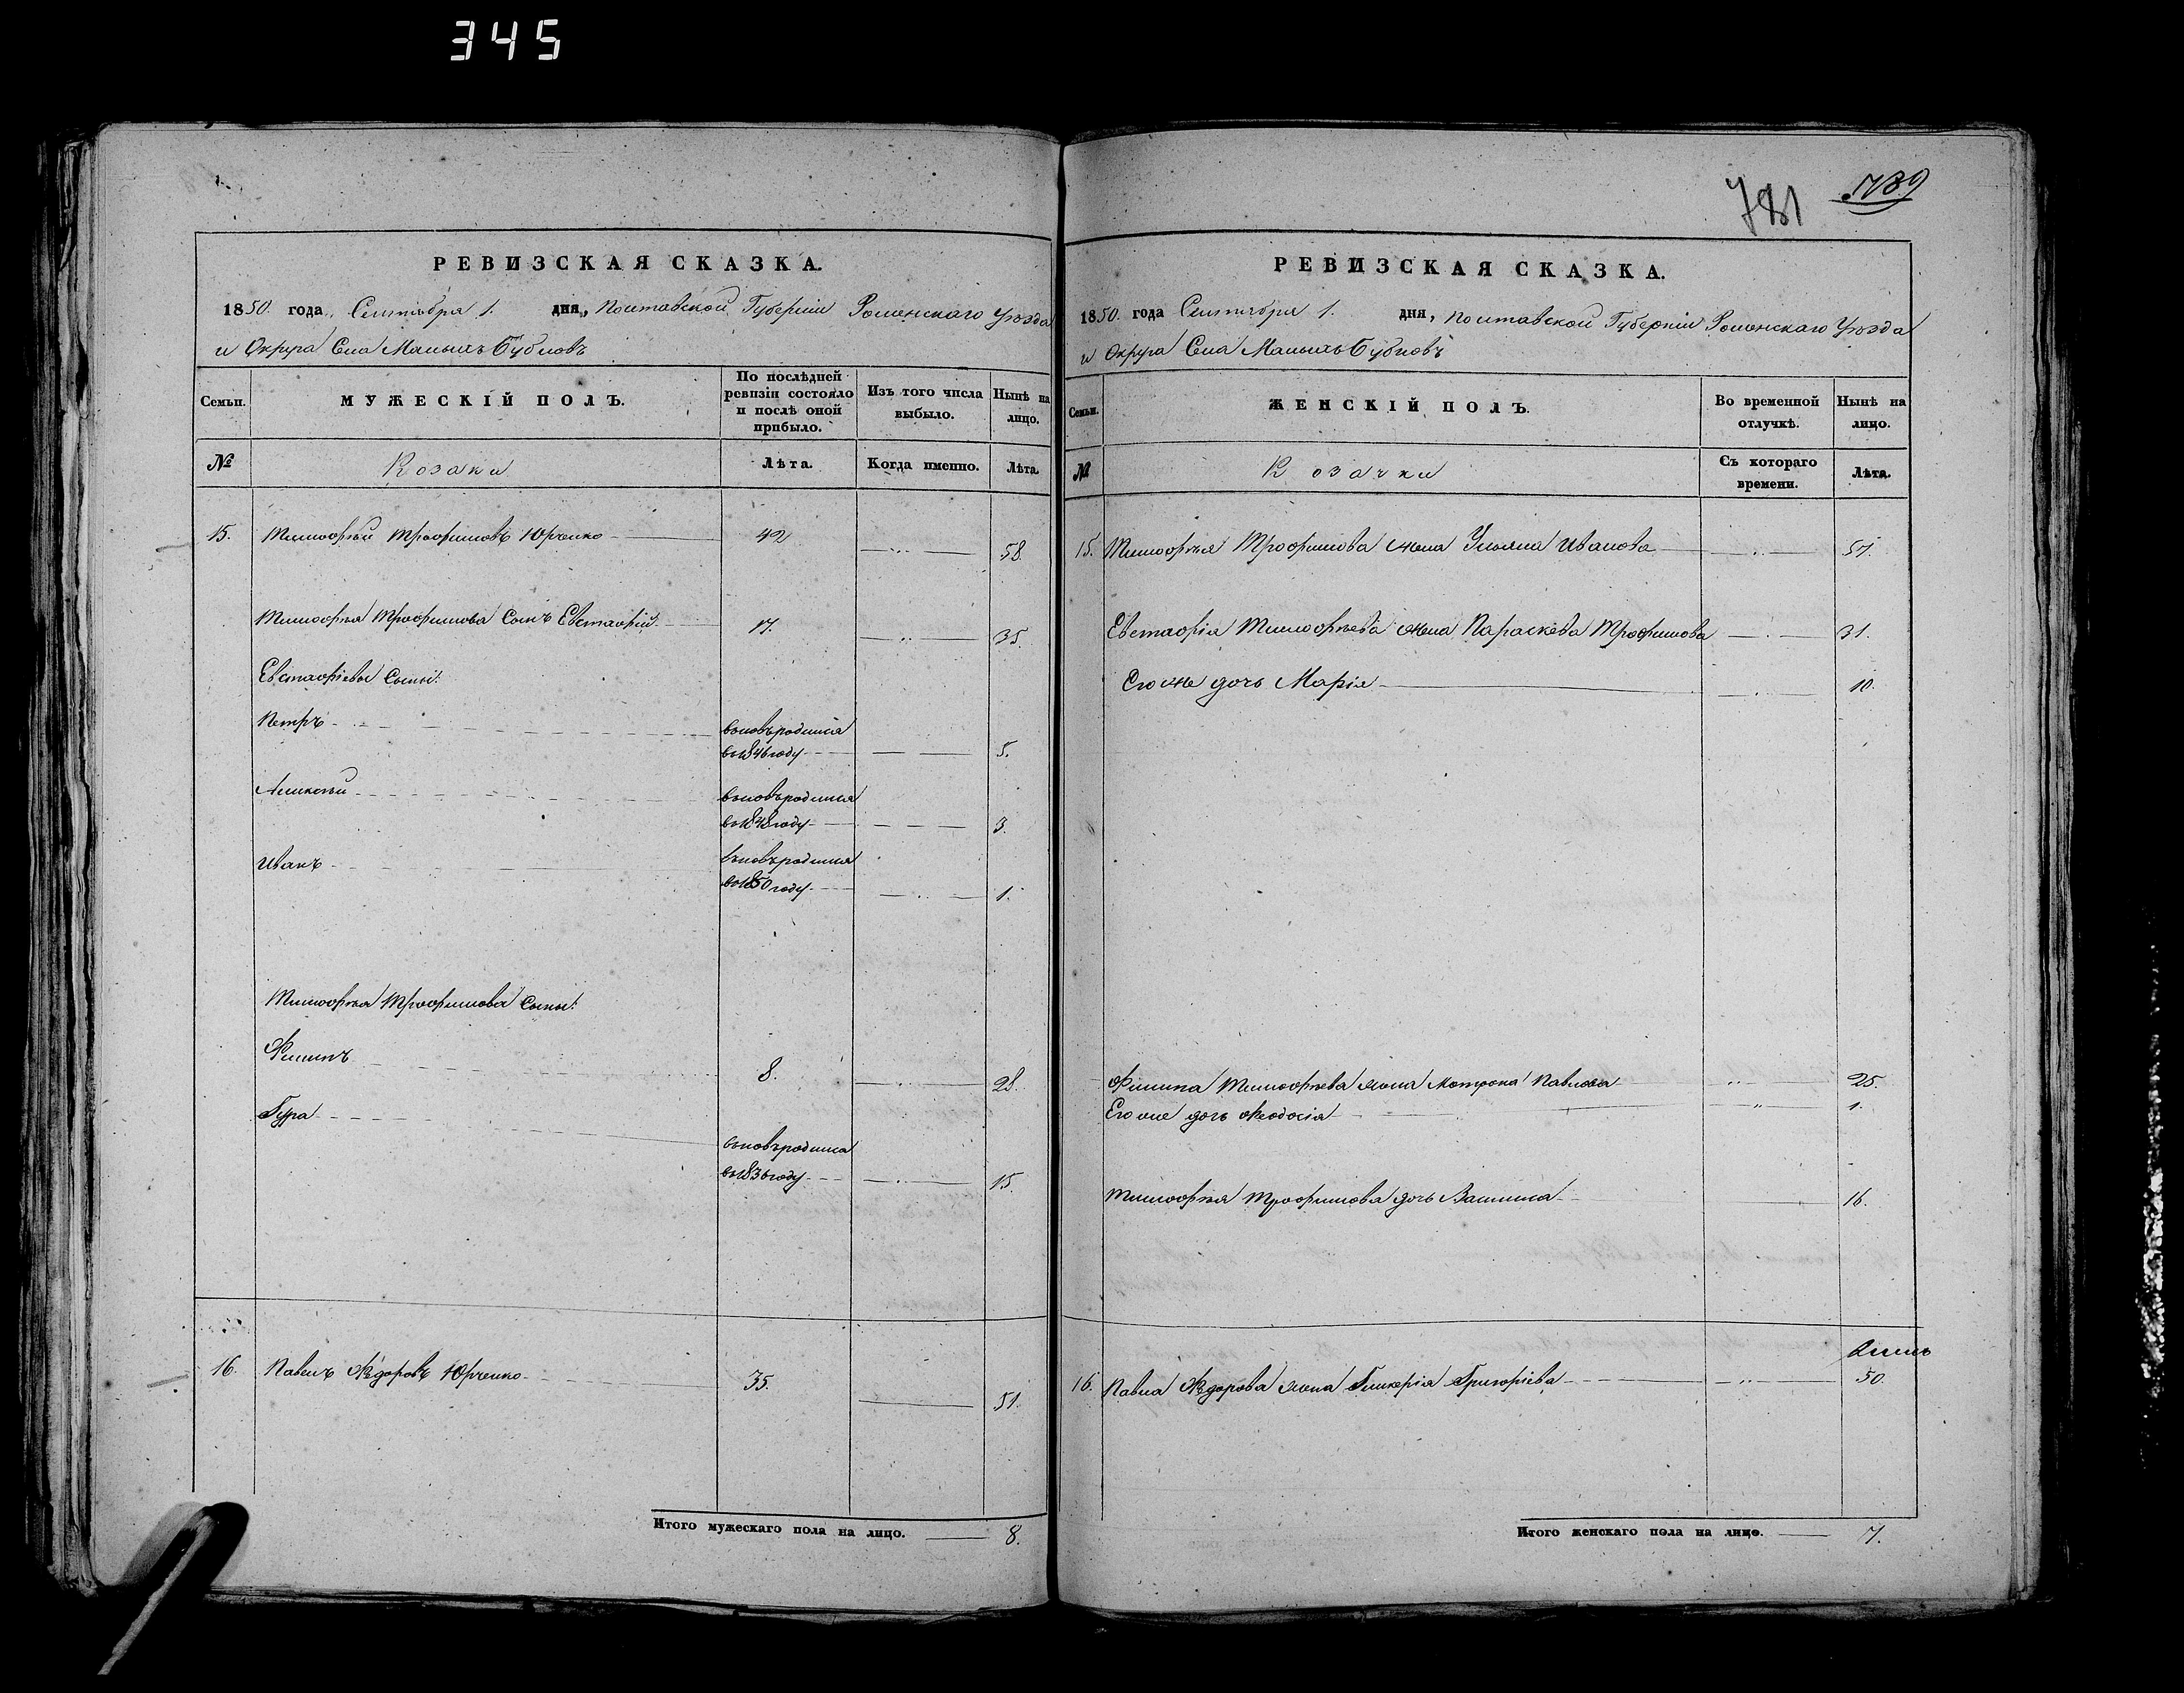 345
781 789
РЕВИЗСКАЯ СКАЗКА.
1850. года, Сентября 1. дня, Полтавской Губерніи Роменскаго Уѣзда
и Округа Села Малыхъ Бубновъ
Семьи. МУЖЕСКІЙ ПОЛЪ. По послѣдней ревизіи состояло и послѣ оной прибыло. Изъ того числа выбыло. Нынѣ на лицо.
№ Козаки Лѣта. Когда именно. Лѣта.
15. Тимофѣй Трофимовъ Юрченко 42 58.
Тимофѣя Трофимова Сынъ Евстафій. 17. 35.
Евстафіевы Сыны:
Петръ вновьродился
въ 1846 году 5.
Алексѣй вновьродился
въ 1848 году 3.
Иванъ вновьродился
въ 1850 году 1.
Тимофѣя Трофимова Сыны:
Филипъ 8. 28.
Гура вновьродился
въ 1836 году 15.
16. Павелъ Ѳедоровъ Юрченко 35. 51.
Итого мужескаго пола на лицо. 8.
РЕВИЗСКАЯ СКАЗКА.
1850. года Сентября 1. дня, Полтавской Губерніи Роменскаго Уѣзда
и Округа Села Малыхъ Бубновъ
Семьи. ЖЕНСКІЙ ПОЛЪ. Во временной отлучкѣ. Нынѣ на лицо.
№ Козачки Съ котораго времени. Лѣта.
15. Тимофѣя Трофимова жена Ульяна Иванова 57.
Евстафія Тимофѣева жена Параскева Трофимова 31.
Его же дочь Марія 10.
Филипа Тимофѣева жена Мотрона Павлова 25.
Его же дочь Ѳеодосія 1.
Тимофѣя Трофимова дочь 16.
16. Павла Ѳедорова жена Гликерія Григоріева 50.
Итого женскаго пола на лицо. 7.